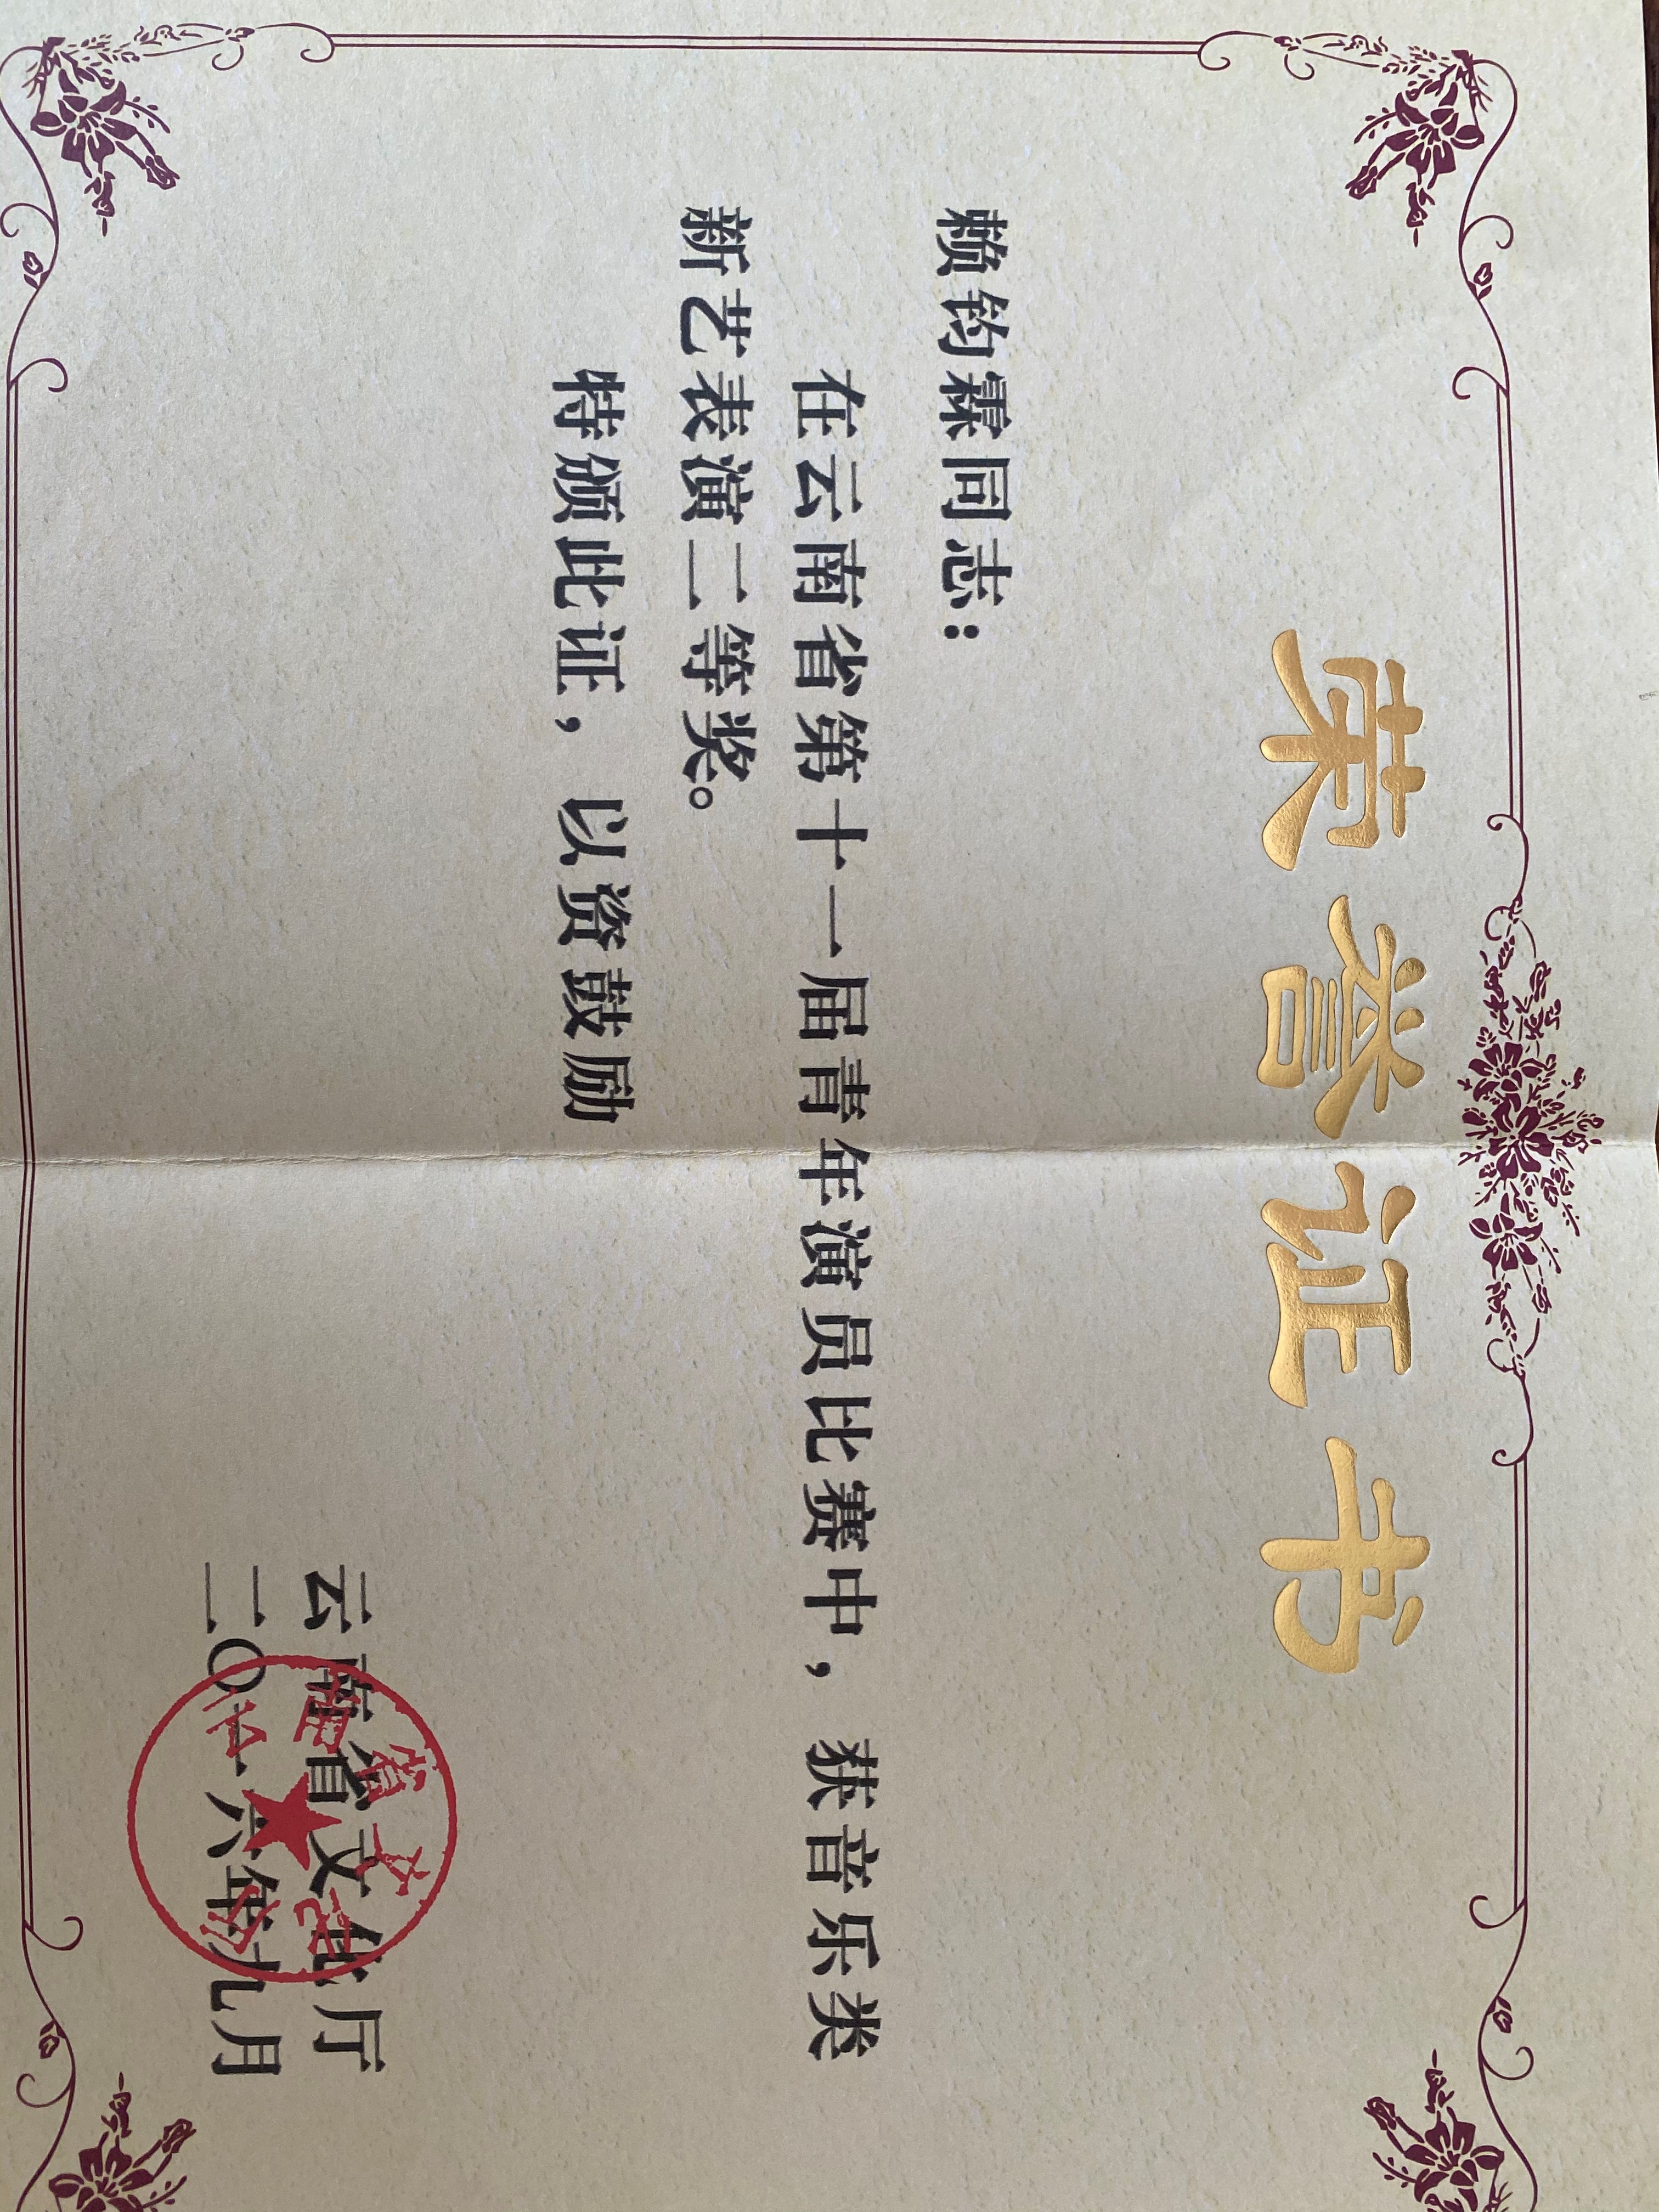 荣誉证书
赖钧霖同志：
在云南省第十一届青年演员比赛中，获音乐类
新艺表演二等奖。
特颁此证，以资鼓励
云南省文化厅
二〇一六年九月
云南省文化厅